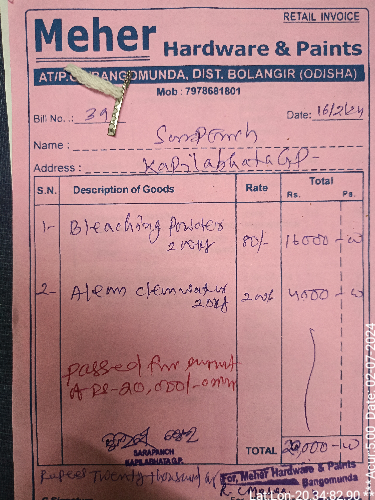 RETAIL INVOICE
Meher Hardware & Paints
BANGOMUNDA, DIST. BOLANGIR (ODISHA)
Mob : 7978681801
Bill No. : 39 Date: 16/2/24
Name : Sarapanch
Address : Kapilabhata GP-
S.N. Description of Goods Rate Total
Rs. Ps.
1- Bleaching Powder 80/- 16000
2-
4000
passed for
SARAPANCH
KAPILABHATA G.P.
TOTAL 20,000
Rupees Twenty thousand
For, Meher Hardware & Paints
Bangomunda
Lat,Lon- 20.34,82.90 ** Acur:5.00 Date: 02-07-2024 **